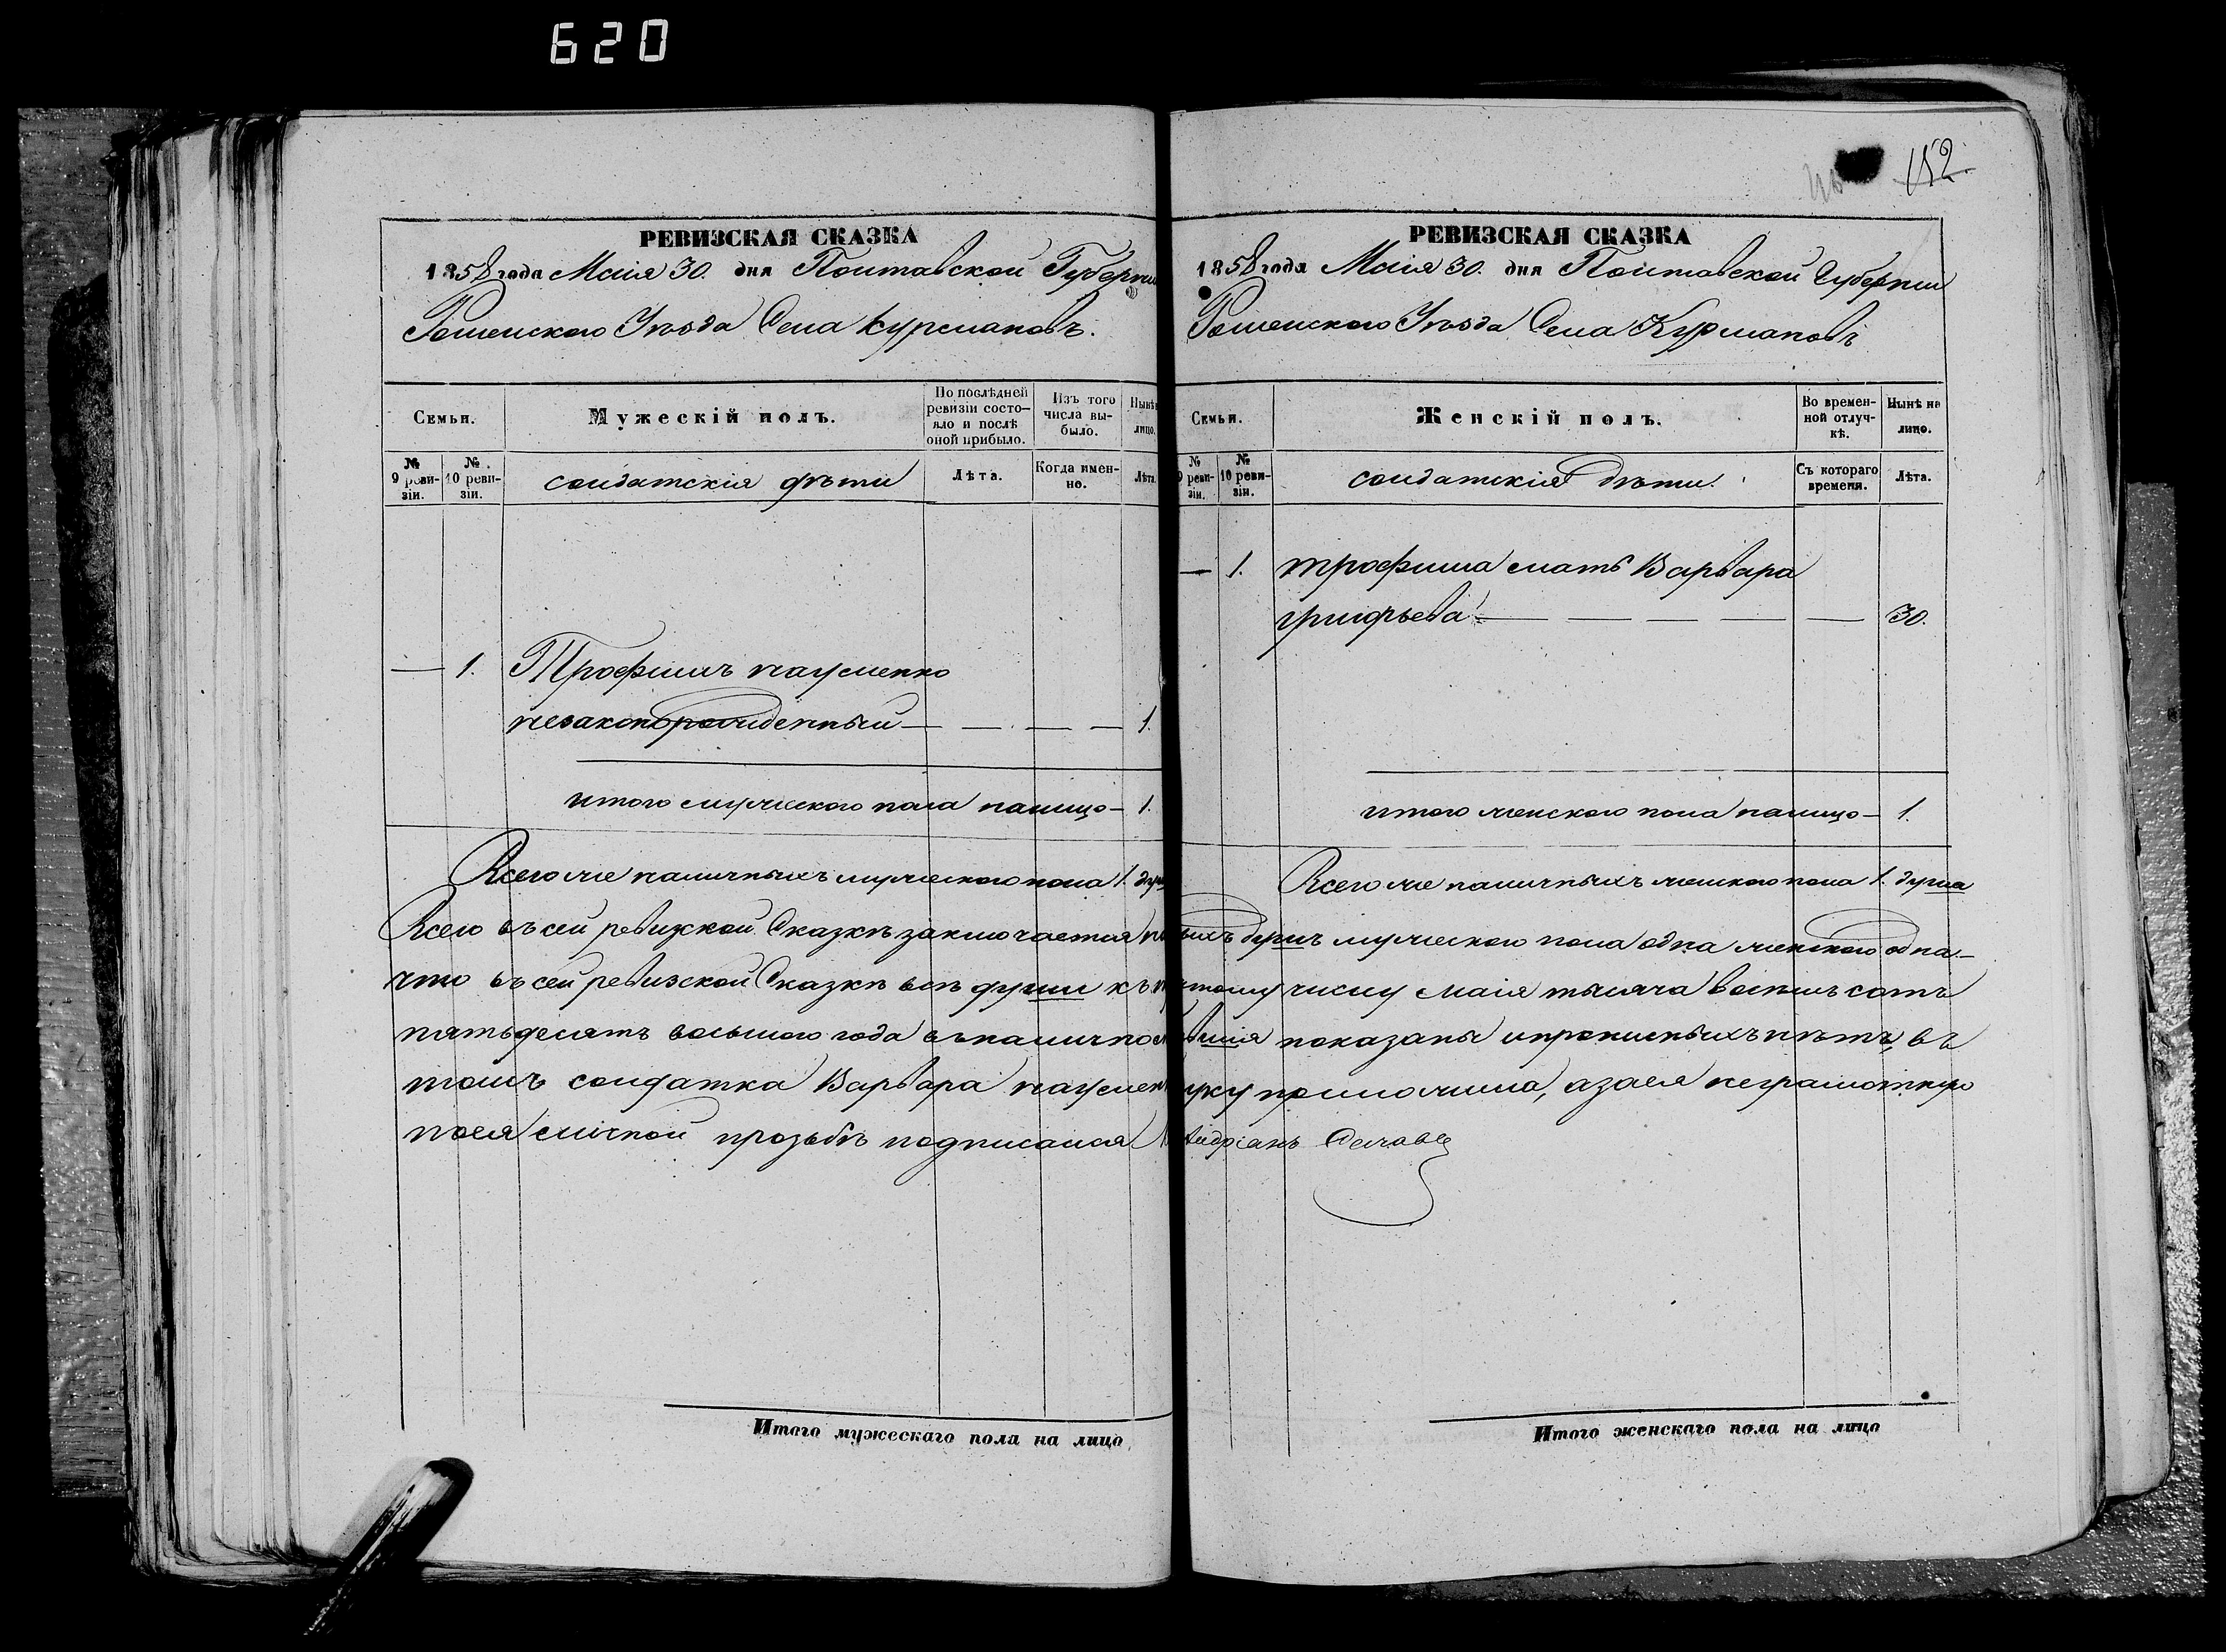 620
152.
РЕВИЗСКАЯ СКАЗКА
1858 года Маія 30. дня Полтавской Губерніи
Роменского Уѣзда Села Курмановъ.
Семьи.
Мужескій полъ.
По послѣдней ревизіи состояло и послѣ оной прибыло.
Изъ того числа выбыло.
Нынѣ лицо.
№ 9 ревизіи.
№ 10 ревизіи.
солдатскія дѣти
Лѣта.
Когда именно.
Лѣта.
— 1. Трофимъ Науменко
незаконорожденный — — — — 1.
итого мужеского пола налицо — 1.
Всего же наличныхъ мужеского пола 1. душ
РЕВИЗСКАЯ СКАЗКА
1858 года Маія 30. дня Полтавской Губерніи
Роменского Уѣзда Села Курмановъ
Семьи.
Женскій полъ.
Во временной отлучкѣ.
Нынѣ на лицо.
№ 9 ревизіи.
№ 10 ревизіи.
солдатскія дѣти.
Съ котораго времени.
Лѣта.
— 1. Трофима мать Варвара
— — — — — 30.
итого женского пола налицо — 1.
Всего же наличныхъ женского пола 1. душа
Всего въ сей ревизской Сказкѣ заключается душъ мужеского пола одна женского одна —
что въ сей ревизской Сказкѣ всѣ души къ числу Маія тысяча восемь сотъ
пятьдесятъ восьмого года въ показаны и прописныхъ нѣтъ, въ
томъ солдатка Варвара руку приложила, а за ея неграмотную
по ея личной прозьбѣ подписался Андріанъ
Итого мужескаго пола на лицо
Итого женскаго пола на лицо